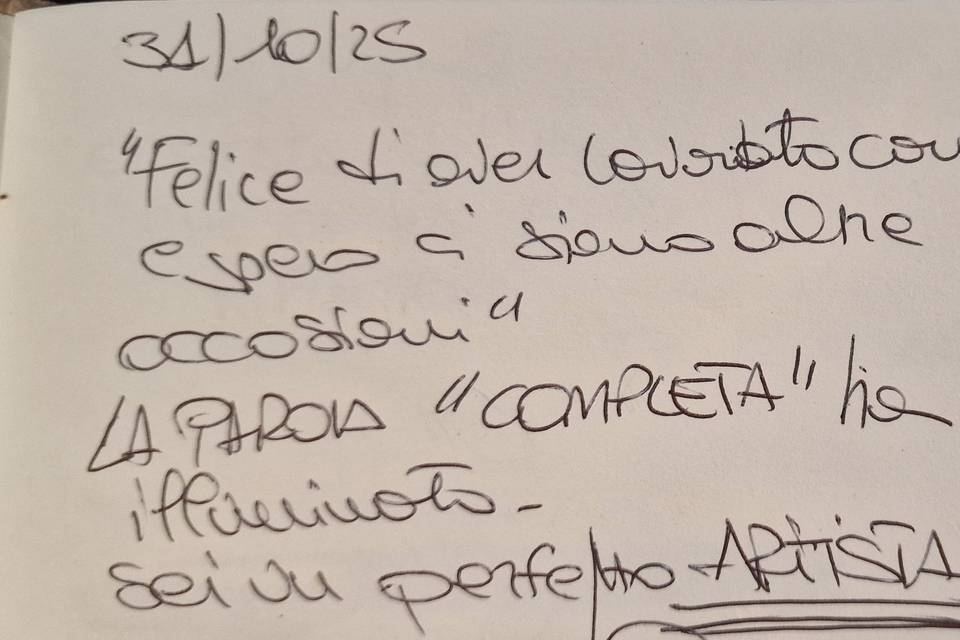 31/10/25
"Felice di aver lavorato con
e spero ci siano altre
occasioni"
LA PAROLA "COMPLETA" ha
illuminato-
sei un perfetto ARTISTA